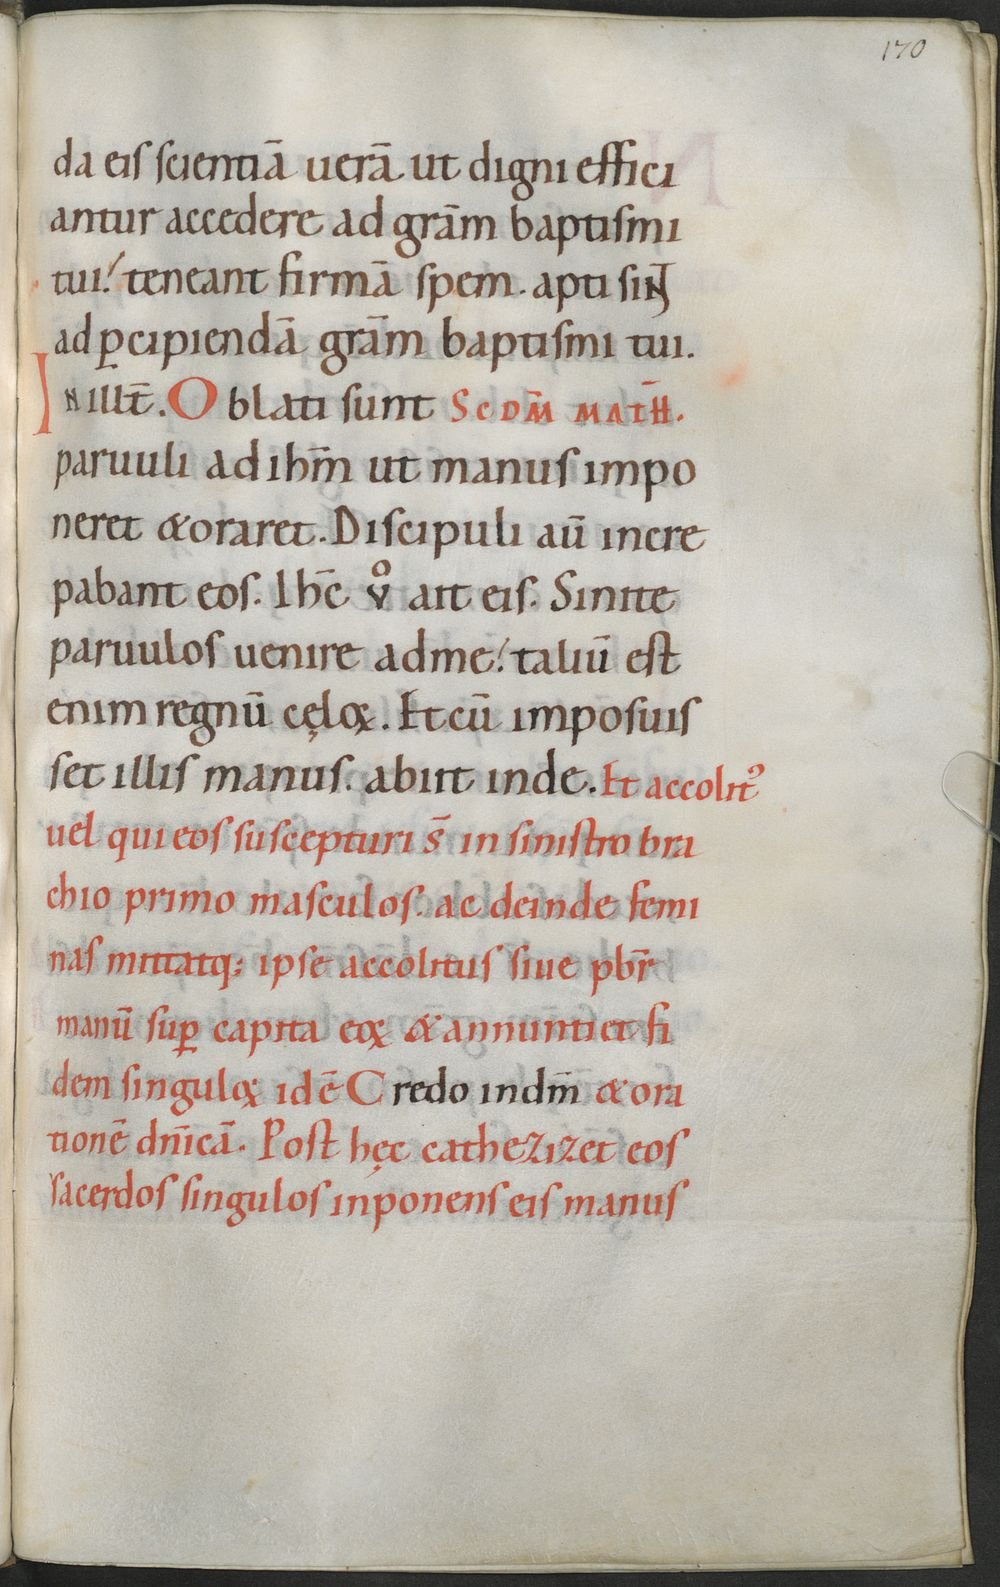 170
da eis scientiā uerā ut digni effici
antur accedere ad grām baptismi
tui! teneant firmā spem. apti sint
ad ꝑcipiendā grām baptismi tui.
In illt̄. Oblati sunt SCDM̄ MATH̄.
paruuli ad ihm̄ ut manus impo
neret & oraret. Discipuli aū incre
pabant eos. Ihc̄ vͦ ait eis. Sinite
paruulos uenire ad me! taliū est
enim regnū cęloꝝ. Et cū imposuis
set illis manus. abiit inde. Et accolitꝰ
uel qui eos suscepturi s̄ in sinistro bra
chio primo masculos. ac deinde femi
nas mittatq; ipse accolitus siue pbr̄
manū suꝑ capita eoꝝ & annuntiet fi
dem singuloꝝ id ē Credo in dm̄ & ora
tionē dn̄icā. Post hęc cathezizet eos
sacerdos singulos inponens eis manus